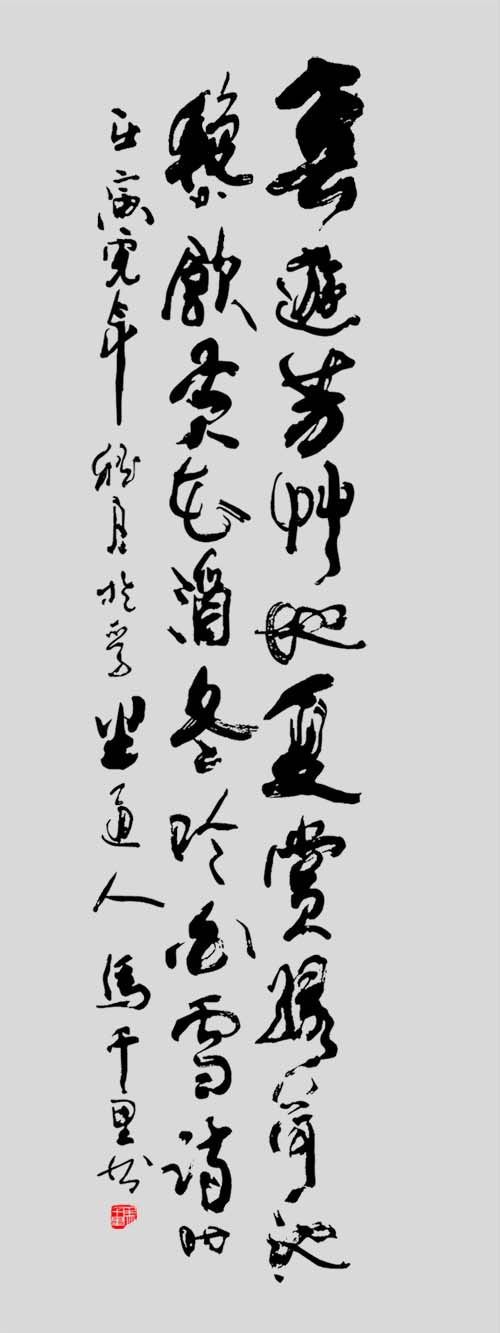 春遊芳艸地夏賞綠荷池
秋飲黄花酒冬吟白雪詩时
壬寅虎年秋月於人馬千里书